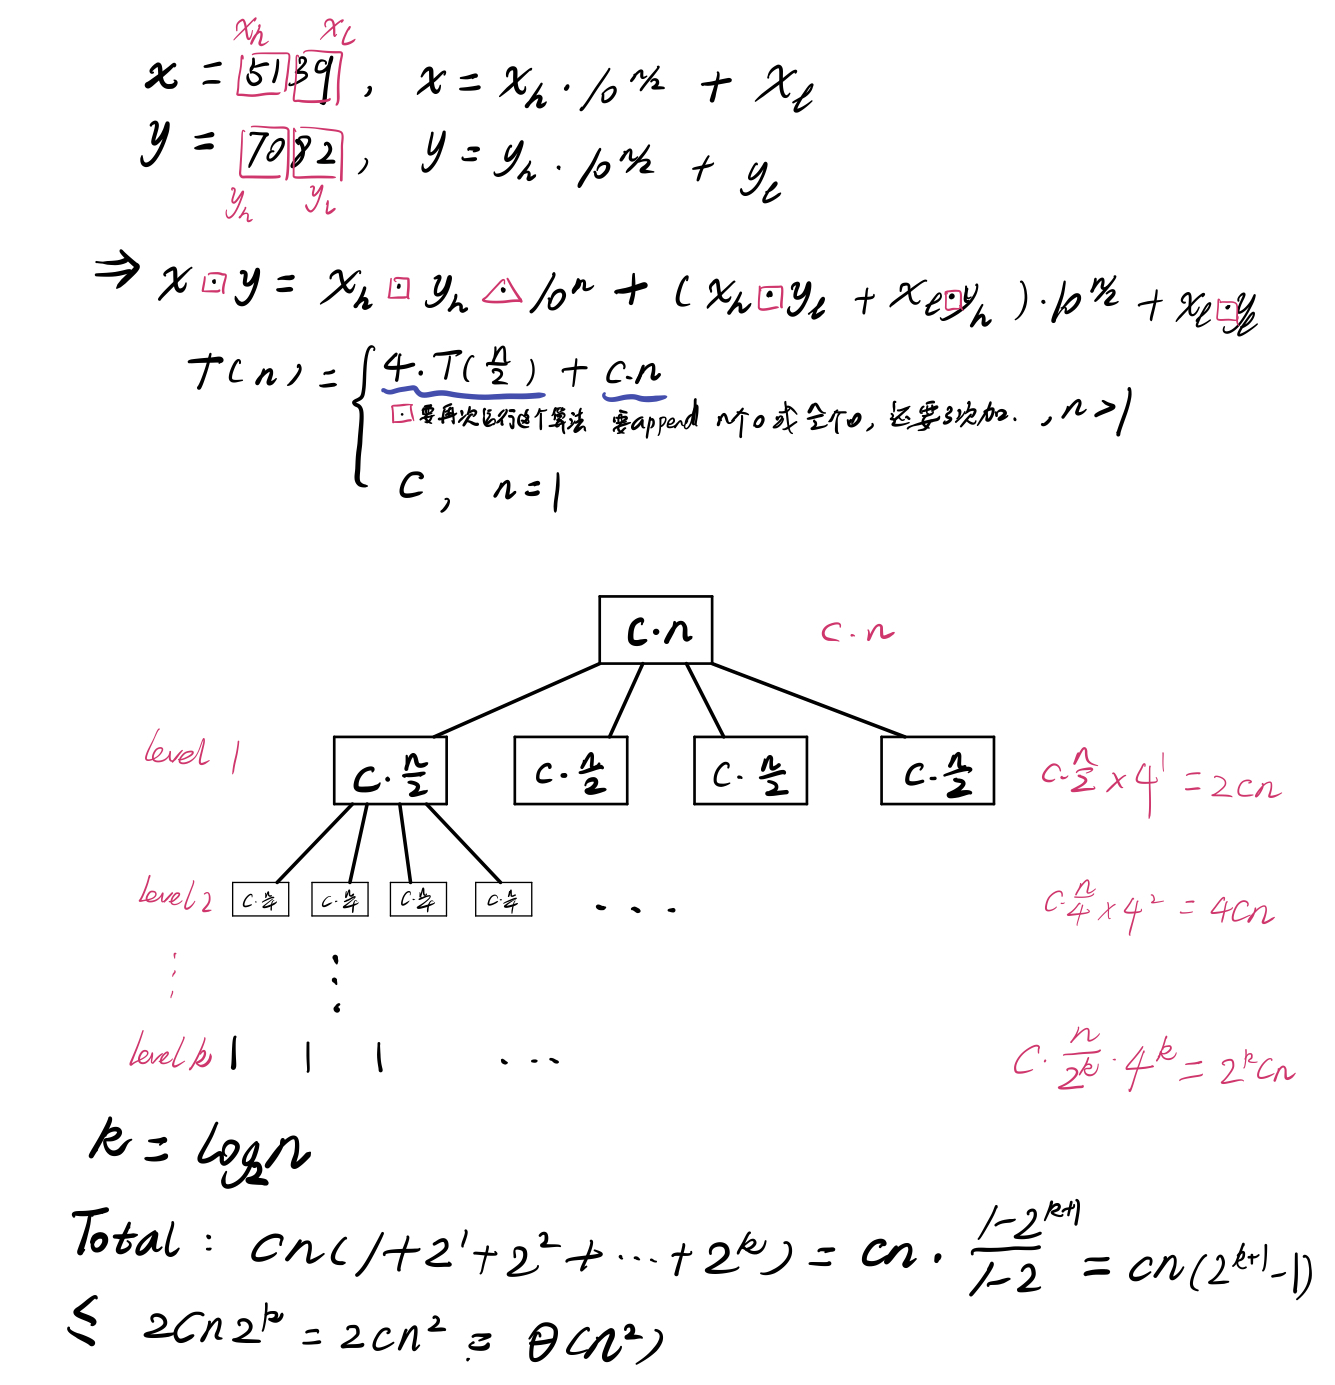 x_h x_l
x = 5139 , x = x_h · 10^{n/2} + x_l
y = 7082 , y = y_h · 10^{n/2} + y_l
y_h y_l
⇒ x ⊡ y = x_h ⊡ y_h ◬ 10^n + ( x_h ⊡ y_l + x_l ⊡ y_h ) · 10^{n/2} + x_l ⊡ y_l
T(n) = { 4·T(n/2) + c·n
⊡ 要再次运行这个算法 要append n个0 或 n/2个0, 还要3次加. , n>1
C , n=1
c·n c·n
level 1 c·n/2 c·n/2 c·n/2 c·n/2 c·n/2 × 4^1 = 2cn
level 2 c·n/4 c·n/4 c·n/4 c·n/4 ... c·n/4 × 4^2 = 4cn
⋮ ⋮
level k 1 1 1 ... c·n/2^k · 4^k = 2^k cn
k = log_2 n
Total : cn(1+2^1+2^2+···+2^k) = cn · (1-2^{k+1})/(1-2) = cn(2^{k+1}-1)
≤ 2cn2^k = 2cn^2 = θ(n^2)